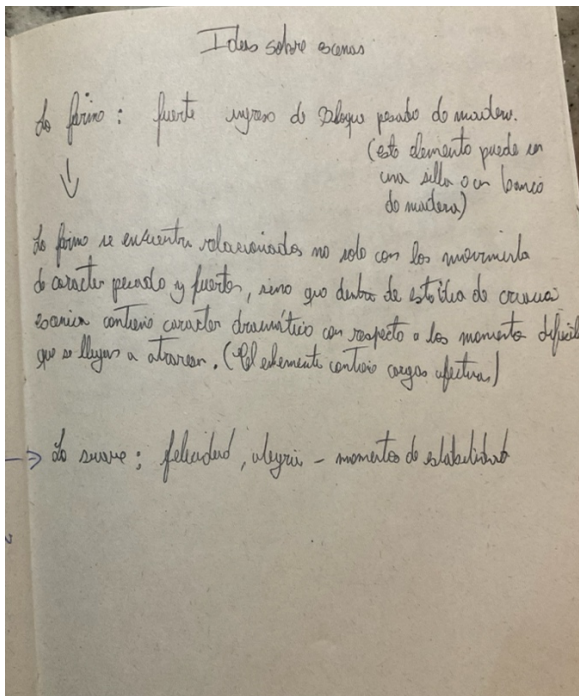 Ideas sobre escenas
Lo : fuerte ingreso de bloque pesado de madera.
(este elemento puede ser
una silla o un banco
de madera)
Lo se encuentra relacionados no solo con los movimiento
de caracter pesado y fuertes, sino que dentro de esta idea de
escenica contiene caracter dramático con respecto a los momento dificiles
que se llegan a atravesar. (el elemento contiene cargas afectivas)
→ Lo suave: felicidad, alegria - momentos de estabilidad